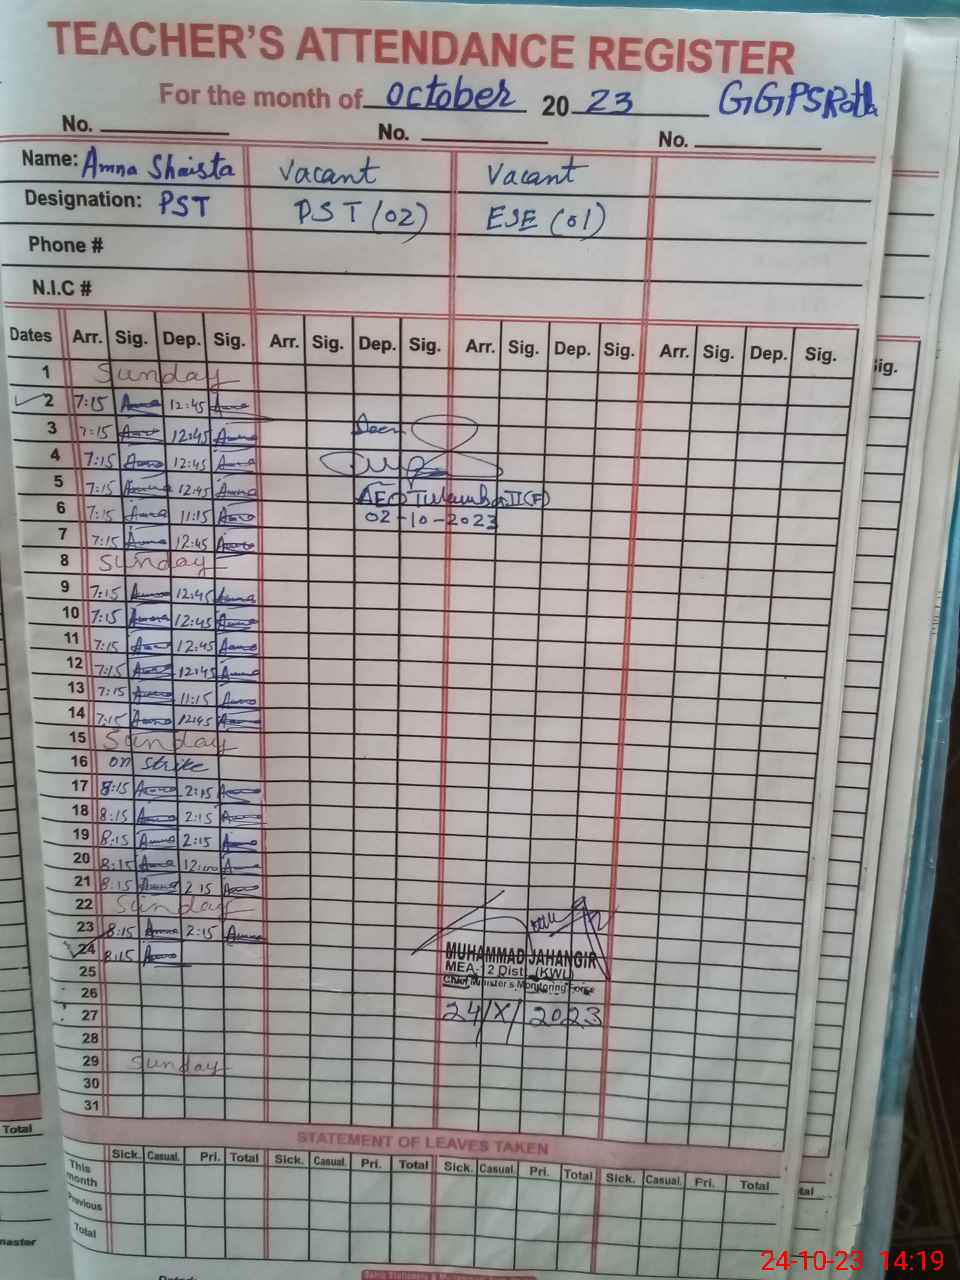 TEACHER'S ATTENDANCE REGISTER
For the month of October 2023 GGPS Rotla
No. No. No.
Name: Amna Shaista Vacant Vacant
Designation: PST PST (02) ESE (01)
Phone #
N.I.C #
Dates Arr. Sig. Dep. Sig. Arr. Sig. Dep. Sig. Arr. Sig. Dep. Sig. Arr. Sig. Dep. Sig. Sig.
1 Sunday
2 7:15 Amna 12:45 Amna
3 7:15 Amna 12:45 Amna Seen
4 7:15 Amna 12:45 Amna
5 7:15 Amna 12:45 Amna AEO II (F)
6 7:15 Amna 11:15 Amna 02-10-2023
7 7:15 Amna 12:45 Amna
8 Sunday
9 7:15 Amna 12:45 Amna
10 7:15 Amna 12:45 Amna
11 7:15 Amna 12:45 Amna
12 7:15 Amna 12:45 Amna
13 7:15 Amna 11:15 Amna
14 7:15 Amna 12:45 Amna
15 Sunday
16 on strike
17 8:15 Amna 2:15 Amna
18 8:15 Amna 2:15 Amna
19 8:15 Amna 2:15 Amna
20 8:15 Amna 12:00 Amna
21 8:15 Amna 2:15 Amna
22 Sunday
23 8:15 Amna 2:15 Amna
24 8:15 Amna MUHAMMAD JAHANGIR
25 MEA-12 Dist. (KWL)
Chief Minister's Monitoring Force
26
27 24/X/2023
28
29 Sunday
30
31
STATEMENT OF LEAVES TAKEN
Total Sick. Casual. Pri. Total Sick. Casual. Pri. Total Sick. Casual. Pri. Total Sick. Casual. Pri. Total
This month
Previous
Total
24-10-23 14:19